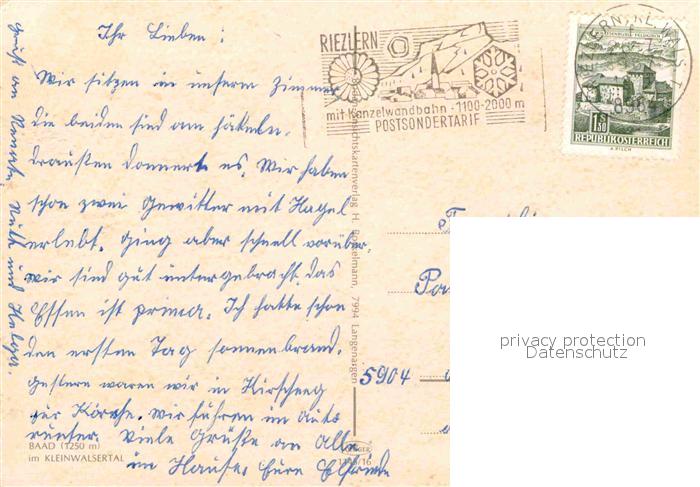 Ihr Lieben!
Wir sitzen in unserm Zimmer
die beiden sind am häkeln.
draußen donnert es. Wir haben
schon zwei Gewitter mit Hagel
erlebt. ging aber schnell vorüber.
wir sind gut untergebracht. das
Essen ist prima. Ich hatte schon
den ersten Tag sonnenbrand.
gestern waren wir in Hirschegg
zur Kirche. Wir fuhren im Auto
runter. Viele Grüße an Alle
im Hause. Eure Elfriede
Gruß an Renate, Ruth und Holger.
RIEZLERN
mit Kanzelwandbahn · 1100-2000 m
POSTSONDERTARIF
1S50
REPUBLIK ÖSTERREICH
A. PILCH
Ansichtskartenverlag H. Bosselmann, 7994 Langenargen
5904
privacy protection
Datenschutz
BAAD (1250 m)
im KLEINWALSERTAL